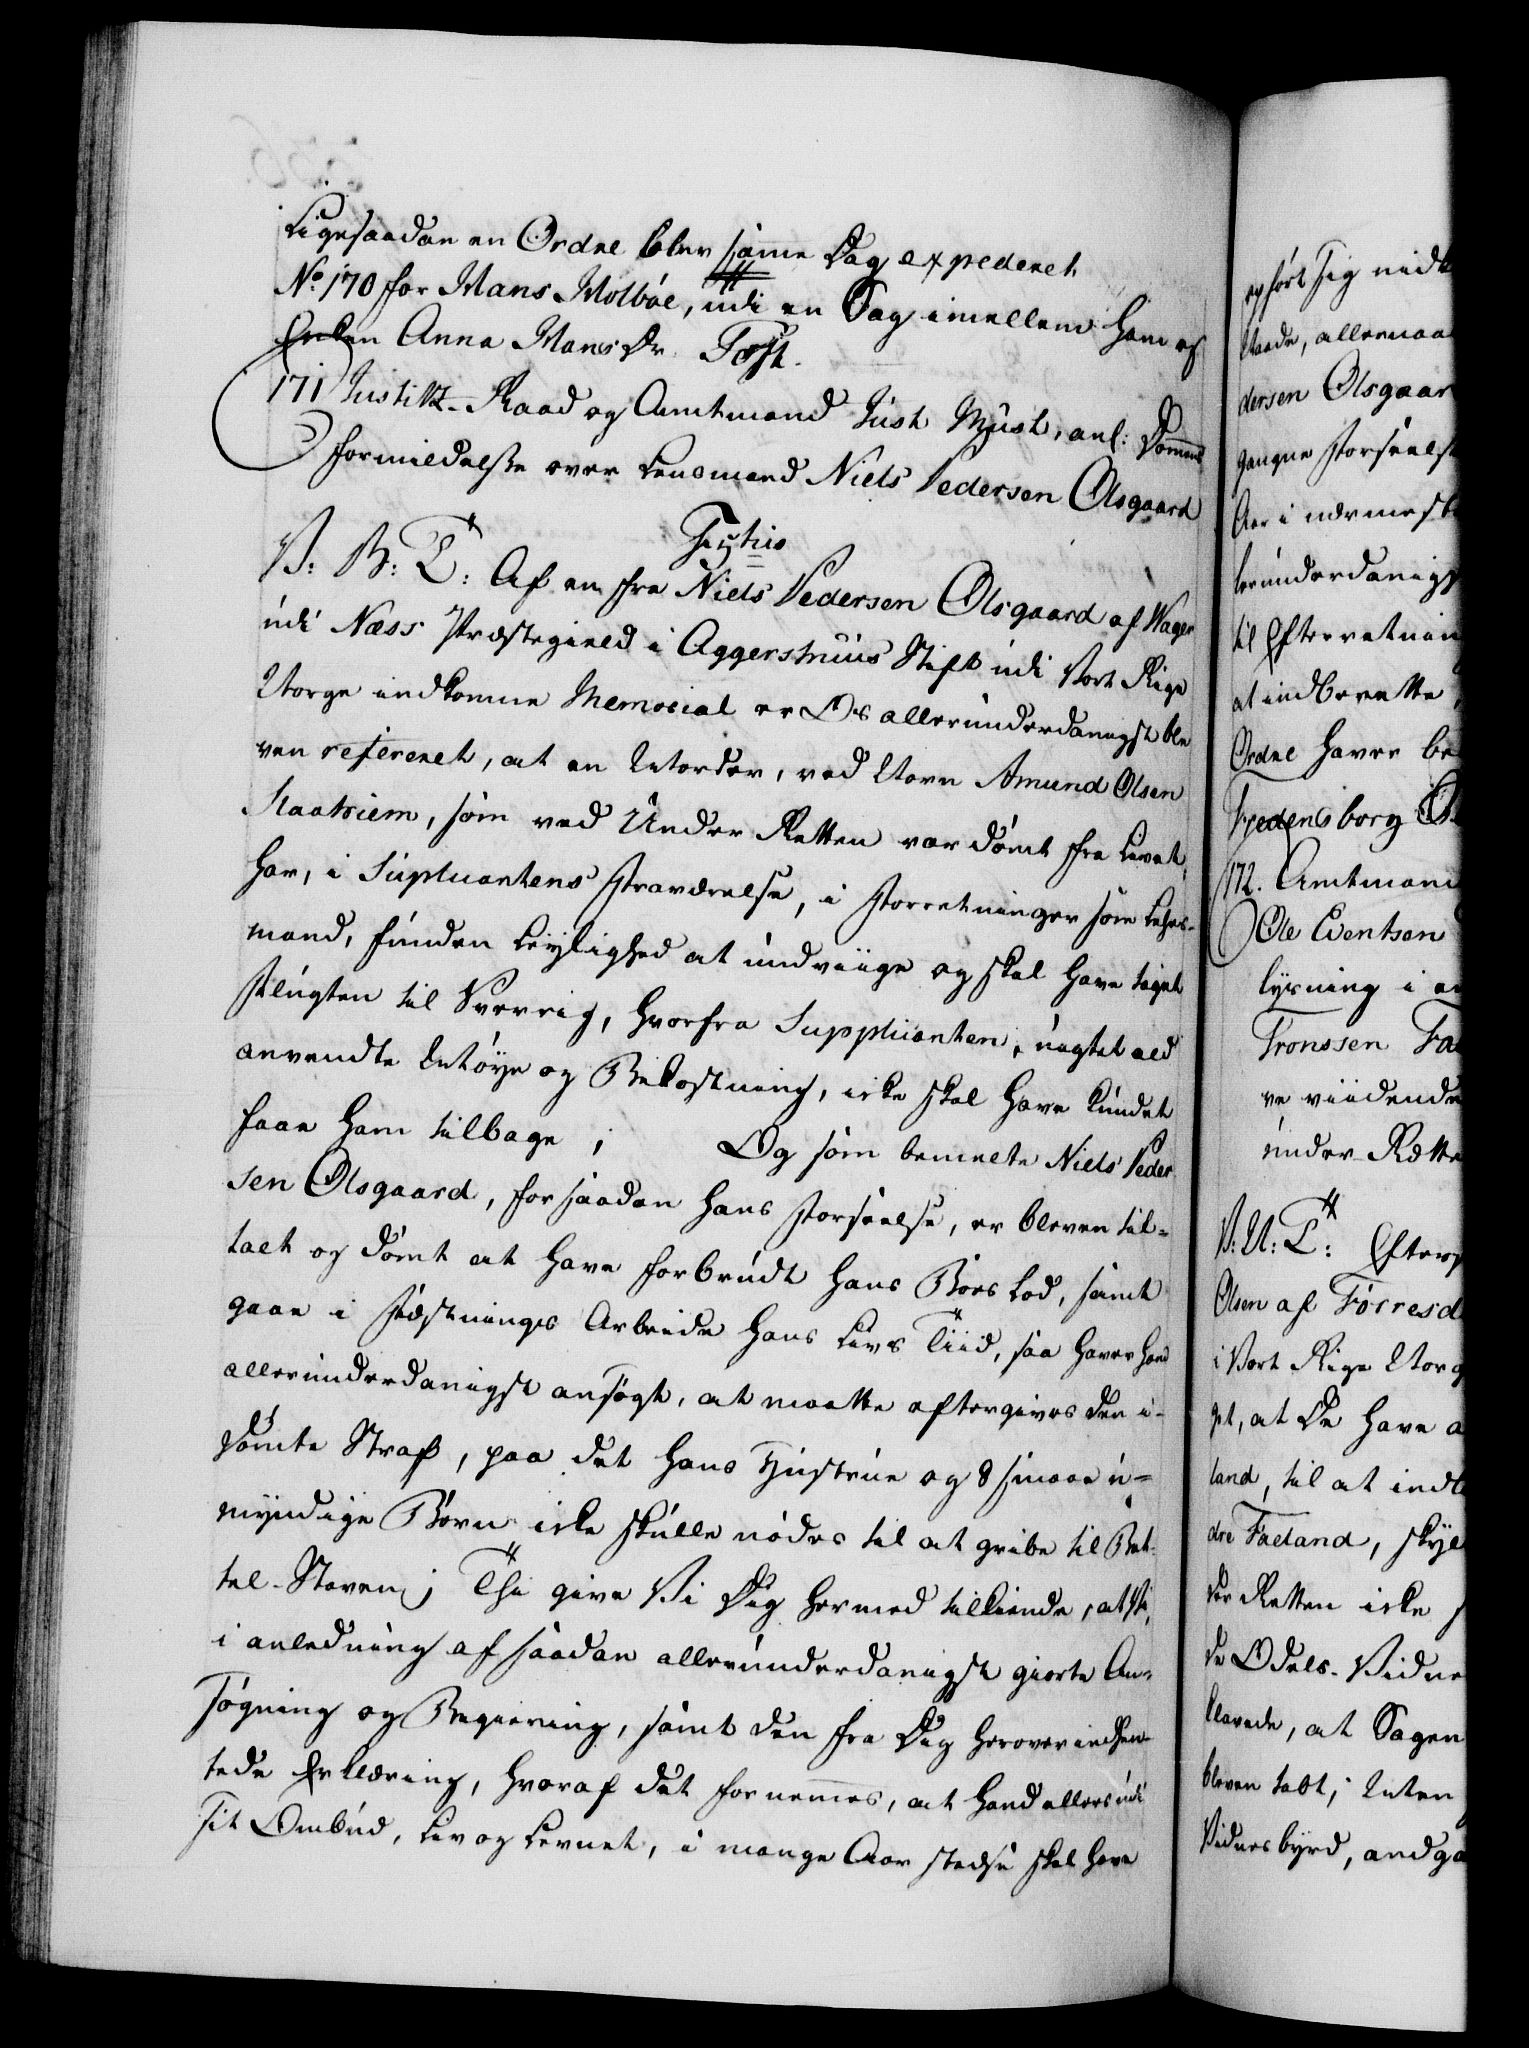 Ligesaadan en Ordre blev samme Dag expederet
No. 170 for Mans Molbóe, udi en Sag imellem ham og
Enken Anna Mans Dr. Tost.
171 Justitz-Raad og Amtmand Just Must, anl: Dommens
formildelsse over Lensmand Niels Pedersen Olsgaard
V: B: T: Af en fra Niels Pedersen Olsgaard af Wager
udi Næss Præstegield i Aggershuus Stift udi Vort Rige
Norge indkomne Memorial er Os allerunderdanigst ble
ven refereret, at en Morder, ved Navn Amund Olsen
som ved Under Retten var dómt fra Livet,
har, i Supluantens fraværelse, i forretninger som Lehns-
mand, funden Leylighed at undviige og skal have taget
flugten til Sverrig, hvorfra Supplicanten, uagtet all
anvendte Umóye og Bekostning, icke skal have kundet
faae ham tilbage; Og som bemelte Niels Peder
sen Olsgaard, for saadan hans forseelse, er bleven til-
talt og dómt at have forbrudt hans Boes Lod, samt
gaae i fæstnings Arbeide hans Livs Tiid, saa haver hand
allerunderdanigst ansógt, at maatte eftergives den i-
dómte Straf, paa det hans Hustrue og 8 smaae u-
myndige Bórn icke skulle nódes til at gribe til Bet-
tel-Staven; Thi give Vi Dig hermed tilkiende, at Vi,
i anledning af saadan allerunderdanigst giorte An-
sógning og Begiering, samt den fra Dig herover indhen-
tede Erklæring, hvoraf det fornemmes, at hand ellers udi
sit Ombud, Liv og Levnet, i mange Aar stedse skal have
opfórt sig
Naade, allernaa
dersen Olsgaar
gangne forseels
Aar i nærmest
lerunderdanigs
til Efterretnin
at indberette,
Ordre haver be
Fredensborg
172. Amtman
Ole Eventsen
lysning i e
Tronssen Fa
ve viidende
under-Rette
V: B: T: Efter
Olsen af Tórresd
i Vort Rige Norg
get, at De have a
land, til at indl
dre Faeland, skyl
der Retten icke
de Odels-Vidne
klarede, at Sagen
bleven tabt; Men
Vidnesbyrd, andga